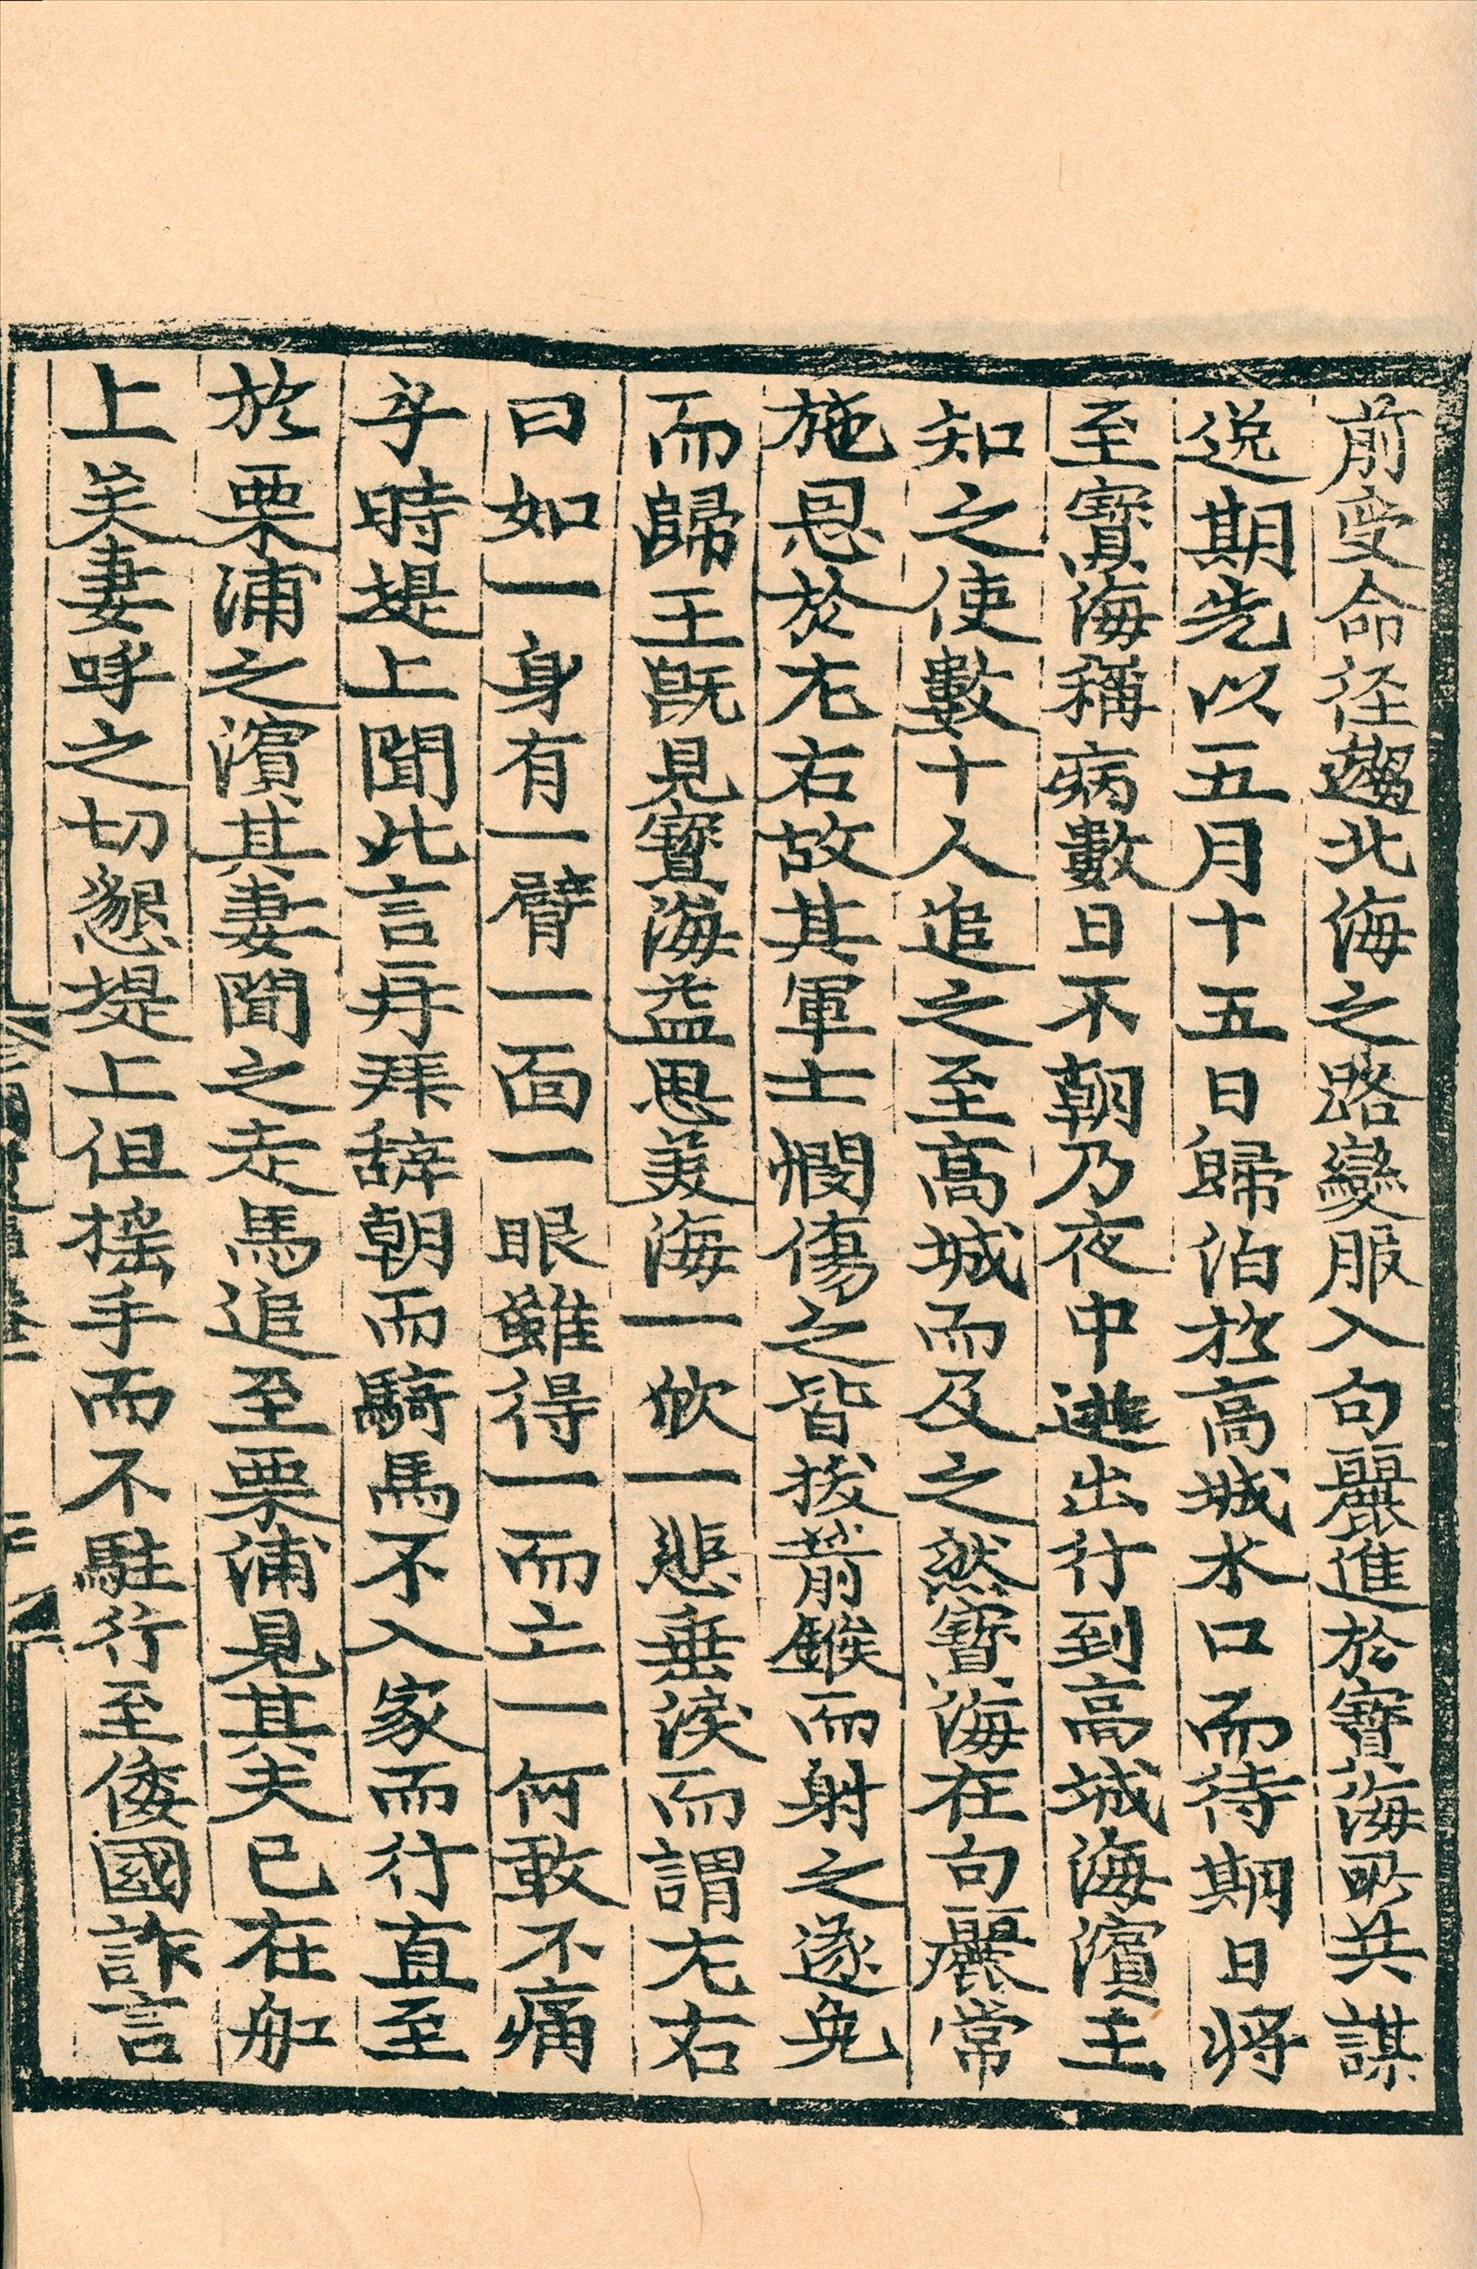 前受命徑趨北海之路變服入句麗進於寳海所共謀
逸期先以五月十五日歸泊於高城水口而待期日將
至寳海稱病數日不朝乃夜中逃出行到高城海濵王
知之使數十人追之至高城而及之然寳海在句麗常
施恩於左右故其軍士憫傷之皆拔箭鏃而射之遂免
而歸王旣見寳海益思美海一欣一悲垂淚而謂左右
曰如一身有一臂一面一眼雖得一而亡一何敢不痛
乎時堤上聞此言再拜辞朝而騎馬不入家而行直至
於栗浦之濵其妻聞之走馬追至栗浦見其夫已在舡
上矣妻呼之切懇堤上但揺手而不駐行至倭國詐言